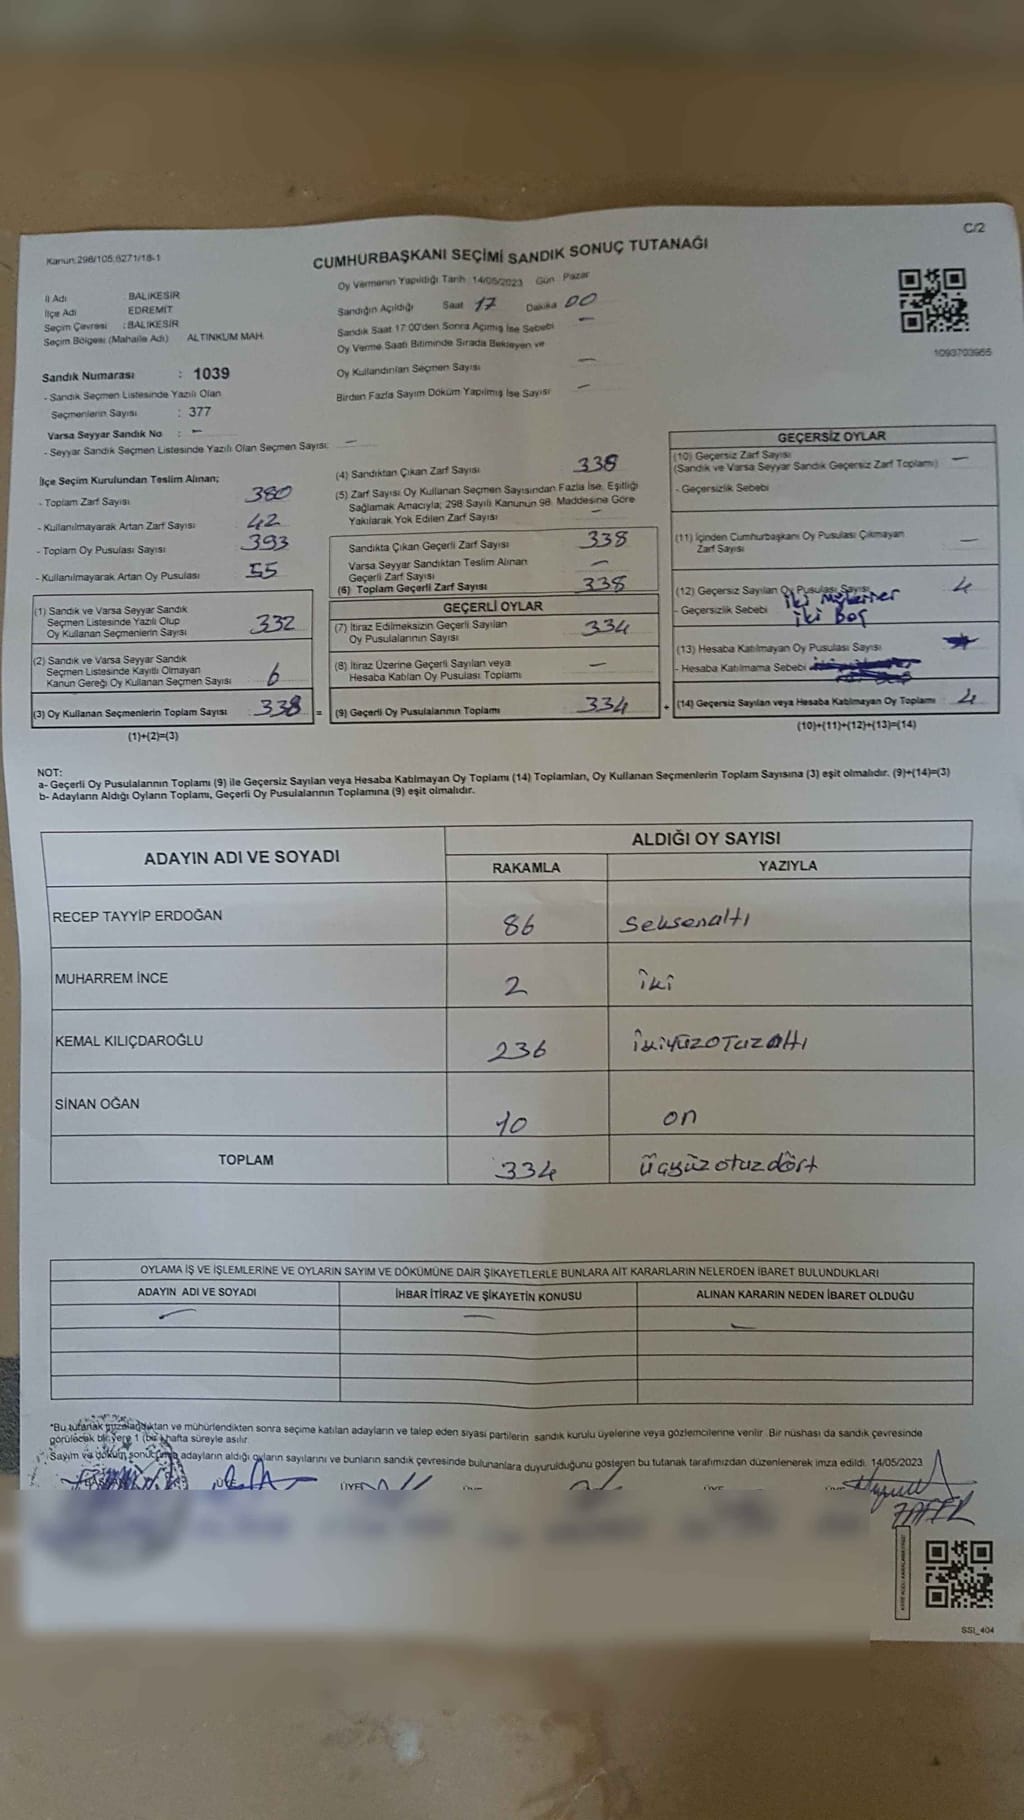 Kanun:298/105;6271/18-1
C/2
CUMHURBAŞKANI SEÇİMİ SANDIK SONUÇ TUTANAĞI
Oy Vermenin Yapıldığı Tarih :14/05/2023 Gün : Pazar
İl Adı BALIKESİR
İlçe Adı EDREMİT
Seçim Çevresi : BALIKESİR
Seçim Bölgesi (Mahalle Adı) ALTINKUM MAH.
Sandığın Açıldığı Saat 17 Dakika 00
Sandık Saat 17:00'den Sonra Açılmış İse Sebebi –
Oy Verme Saati Bitiminde Sırada Bekleyen ve
Oy Kullandırılan Seçmen Sayısı –
Birden Fazla Sayım Döküm Yapılmış İse Sayısı –
1093703965
Sandık Numarası : 1039
- Sandık Seçmen Listesinde Yazılı Olan
Seçmenlerin Sayısı : 377
Varsa Seyyar Sandık No : –
- Seyyar Sandık Seçmen Listesinde Yazılı Olan Seçmen Sayısı: –
İlçe Seçim Kurulundan Teslim Alınan;
- Toplam Zarf Sayısı 380
- Kullanılmayarak Artan Zarf Sayısı 42
- Toplam Oy Pusulası Sayısı 393
- Kullanılmayarak Artan Oy Pusulası 55
(1) Sandık ve Varsa Seyyar Sandık
Seçmen Listesinde Yazılı Olup
Oy Kullanan Seçmenlerin Sayısı 332
(2) Sandık ve Varsa Seyyar Sandık
Seçmen Listesinde Kayıtlı Olmayan
Kanun Gereği Oy Kullanan Seçmen Sayısı 6
(3) Oy Kullanan Seçmenlerin Toplam Sayısı 338 =
(1)+(2)=(3)
(4) Sandıktan Çıkan Zarf Sayısı 338
(5) Zarf Sayısı Oy Kullanan Seçmen Sayısından Fazla İse, Eşitliği
Sağlamak Amacıyla; 298 Sayılı Kanunun 98. Maddesine Göre
Yakılarak Yok Edilen Zarf Sayısı –
Sandıkta Çıkan Geçerli Zarf Sayısı 338
Varsa Seyyar Sandıktan Teslim Alınan
Geçerli Zarf Sayısı –
(6) Toplam Geçerli Zarf Sayısı 338
GEÇERLİ OYLAR
(7) İtiraz Edilmeksizin Geçerli Sayılan
Oy Pusulalarının Sayısı 334
(8) İtiraz Üzerine Geçerli Sayılan veya
Hesaba Katılan Oy Pusulası Toplamı –
(9) Geçerli Oy Pusulalarının Toplamı 334 +
GEÇERSİZ OYLAR
(10) Geçersiz Zarf Sayısı –
(Sandık ve Varsa Seyyar Sandık Geçersiz Zarf Toplamı)
- Geçersizlik Sebebi
(11) İçinden Cumhurbaşkanı Oy Pusulası Çıkmayan
Zarf Sayısı –
(12) Geçersiz Sayılan Oy Pusulası Sayısı 4
- Geçersizlik Sebebi iki
iki Boş
(13) Hesaba Katılmayan Oy Pusulası Sayısı
- Hesaba Katılmama Sebebi
(14) Geçersiz Sayılan veya Hesaba Katılmayan Oy Toplamı 4
(10)+(11)+(12)+(13)=(14)
NOT:
a- Geçerli Oy Pusulalarının Toplamı (9) ile Geçersiz Sayılan veya Hesaba Katılmayan Oy Toplamı (14) Toplamları, Oy Kullanan Seçmenlerin Toplam Sayısına (3) eşit olmalıdır. (9)+(14)=(3)
b- Adayların Aldığı Oyların Toplamı, Geçerli Oy Pusulalarının Toplamına (9) eşit olmalıdır.
ADAYIN ADI VE SOYADI ALDIĞI OY SAYISI
RAKAMLA YAZIYLA
RECEP TAYYİP ERDOĞAN 86 Seksenaltı
MUHARREM İNCE 2 iki
KEMAL KILIÇDAROĞLU 236 ikiyüzotuzaltı
SİNAN OĞAN 10 on
TOPLAM 334 üçyüzotuzdört
OYLAMA İŞ VE İŞLEMLERİNE VE OYLARIN SAYIM VE DÖKÜMÜNE DAİR ŞİKAYETLERLE BUNLARA AİT KARARLARIN NELERDEN İBARET BULUNDUKLARI
ADAYIN ADI VE SOYADI İHBAR İTİRAZ VE ŞİKAYETİN KONUSU ALINAN KARARIN NEDEN İBARET OLDUĞU
– – –
*Bu tutanak imzalandıktan ve mühürlendikten sonra seçime katılan adayların ve talep eden siyasi partilerin sandık kurulu üyelerine veya gözlemcilerine verilir. Bir nüshası da sandık çevresinde
görülecek bir yere 1 (bir) hafta süreyle asılır.
Sayım ve döküm sonucunda adayların aldığı oyların sayılarını ve bunların sandık çevresinde bulunanlara duyurulduğunu gösteren bu tutanak tarafımızdan düzenlenerek imza edildi. 14/05/2023
BAŞKAN ÜYE ÜYE ÜYE ÜYE ÜYE
ZAFER
SSI_404